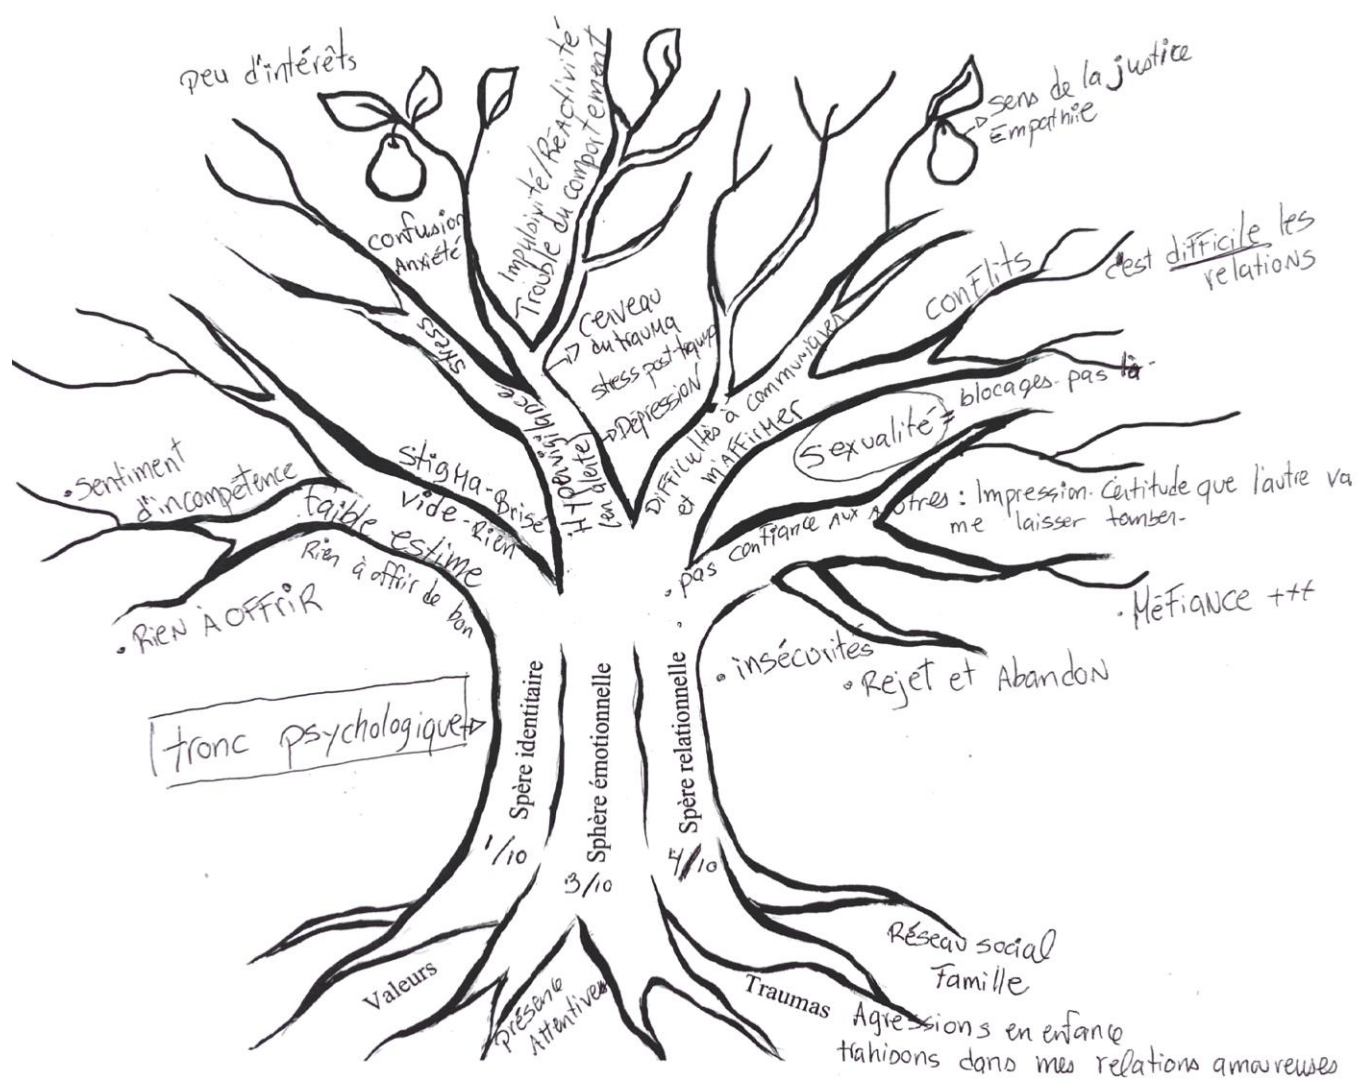 Peu d'intérêts
Confusion
Anxiété
Impulsivité/Réactivité
Trouble du comportement
Sens de la justice
Empathie
stress
Hypervigilance
(en alerte)
Cerveau
du trauma
stress post-traum
Dépression
Difficultés à communiquer
et m'AFFirmer
conflits
c'est difficile les
relations
sexualité = blocages. pas là.
Stigma-Brisé
vide-Rien
• Sentiment
d'incompétence
faible estime
Rien à offrir de bon
• Rien À OFFRiR
• pas confiance aux autres : Impression. Certitude que l'autre va
me laisser tomber.
• MéFiance +++
• insécurités
• Rejet et Abandon
tronc psychologique
Spère identitaire
Sphère émotionnelle
Spère relationnelle
1/10
3/10
4/10
Valeurs
présence
Attentives
Traumas
Réseau social
Famille
Agressions en enfance
trahisons dans mes relations amoureuses